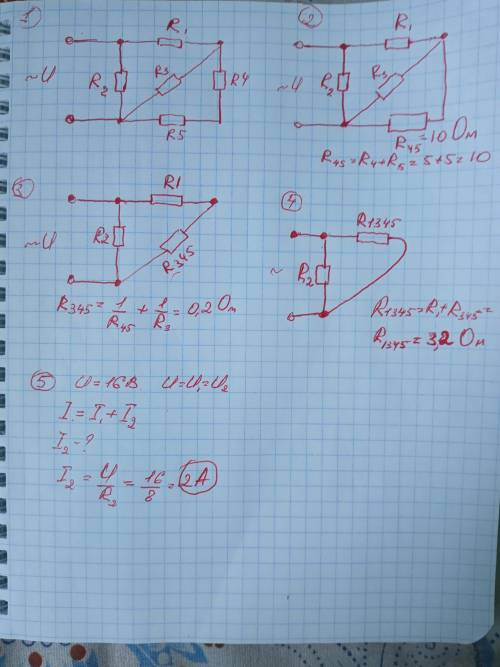 1
R1
~U
R2
R3
R4
R5
2
R1
~U
R2
R3
R45 = 10 Ом
R45 = R4 + R5 = 5 + 5 = 10
3
R1
~U
R2
R345
R345 = 1/R45 + 1/R3 = 0,2 Ом
4
R1345
~
R2
R1345 = R1 + R345 =
R1345 = 3,2 Ом
5 U = 16 В U = U1 = U2
I = I1 + I2
I2 - ?
I2 = U/R2 = 16/8 = 2А